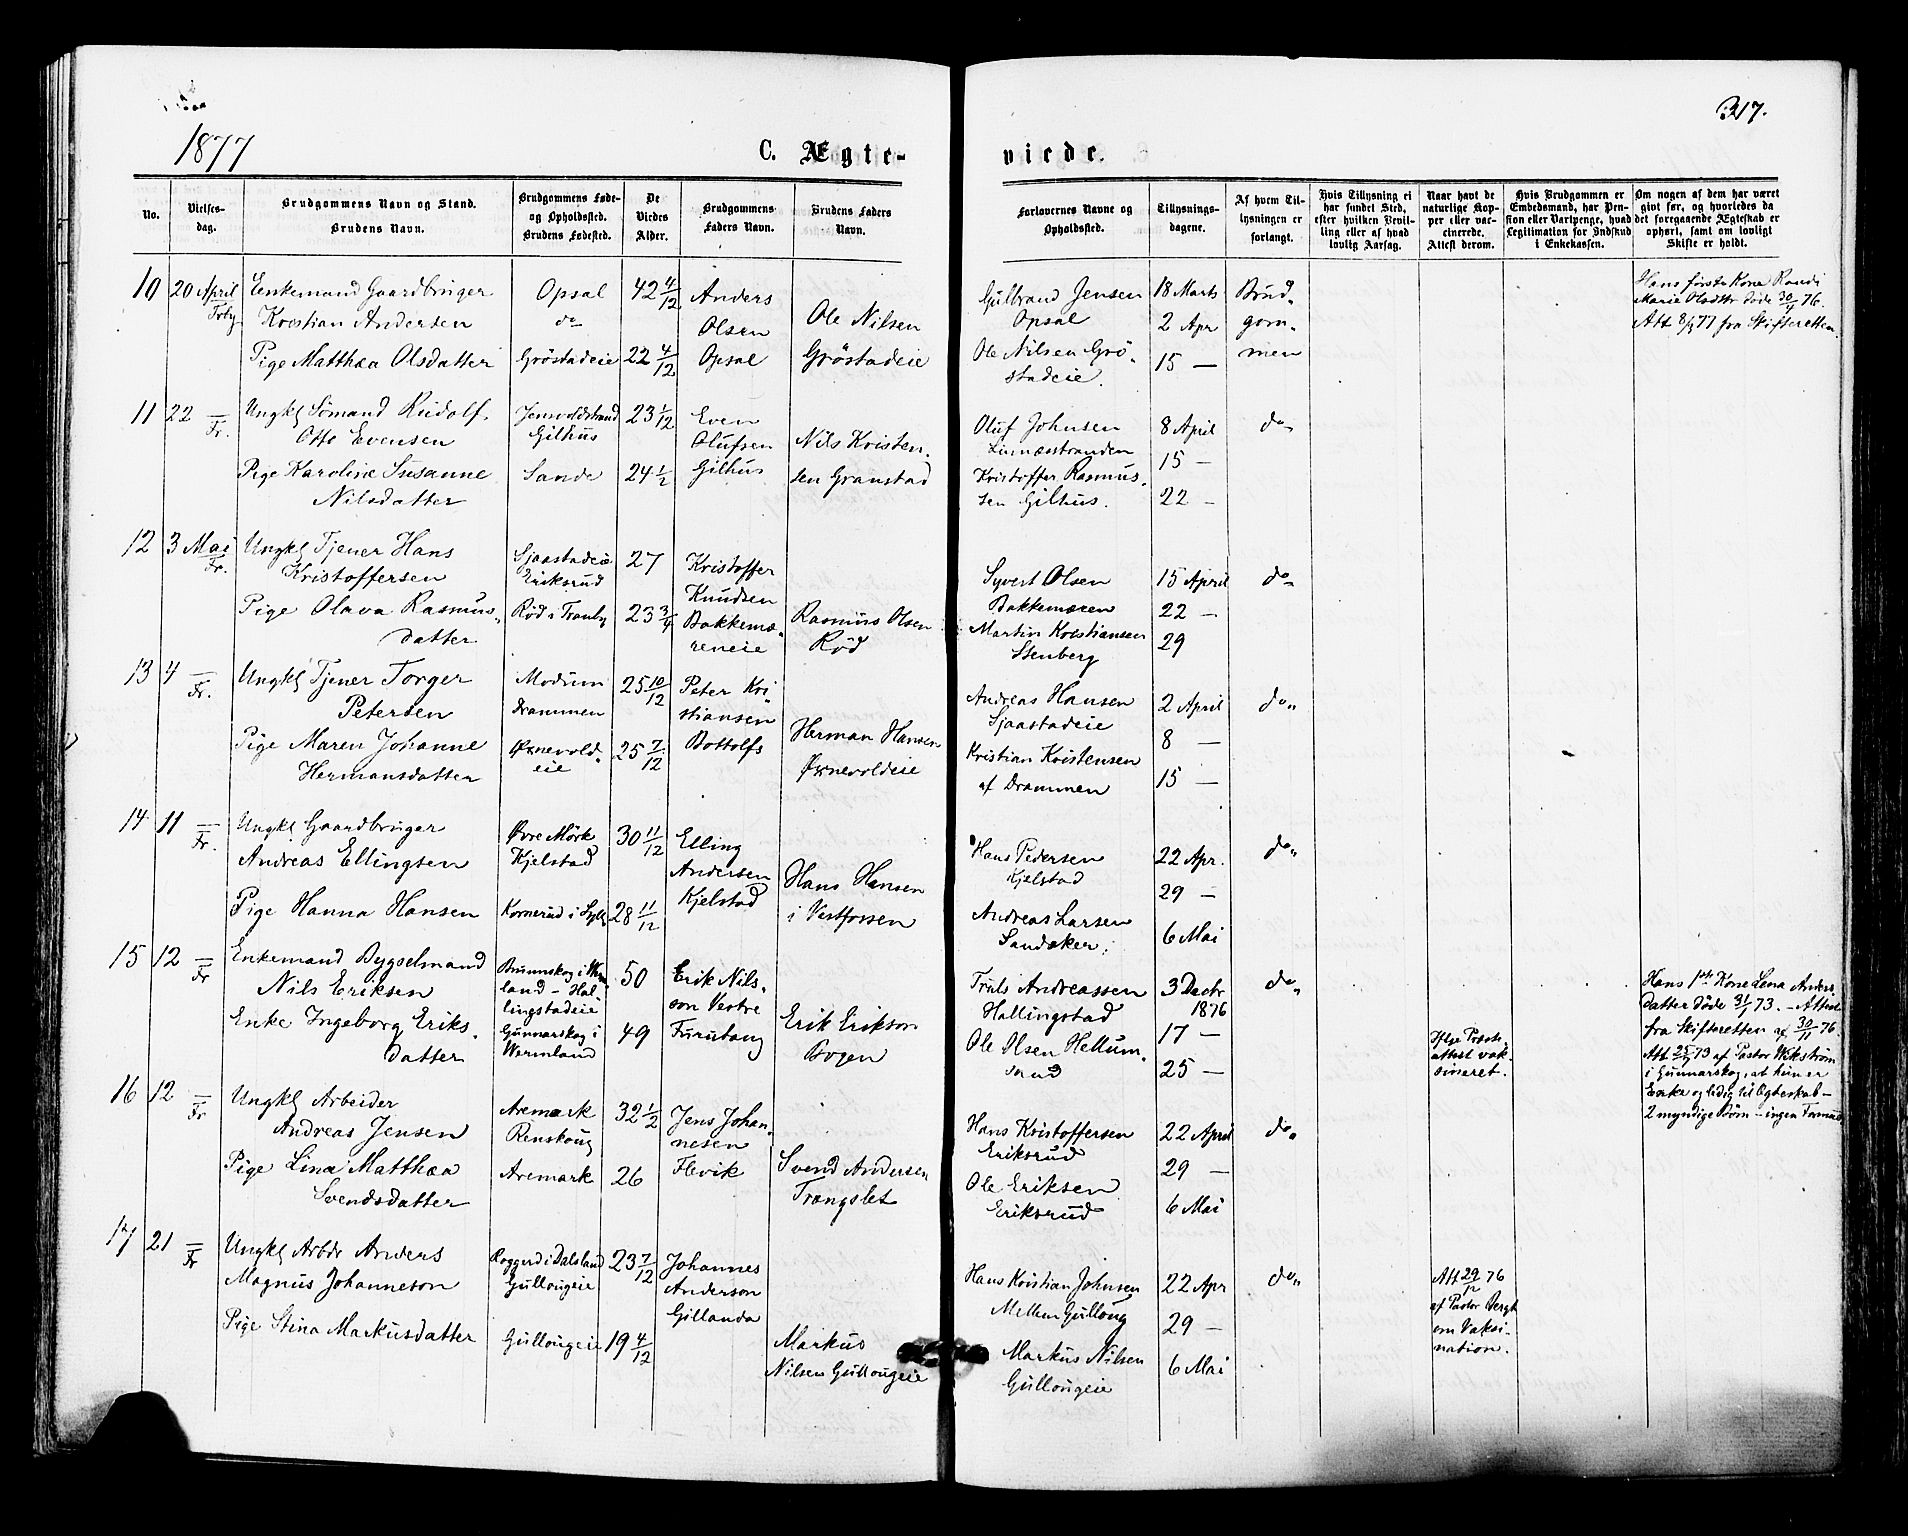 1877
317.
C. Ægte-
viede.
No.
Vielses-
dag.
Brudgommens Navn og Stand.
Brudens Navn.
Brudgommens Føde-
og Opholdsted.
Brudens Fødested.
De
Viedes
Alder.
Brudgommens
Faders Navn.
Brudens Faders
Navn.
Forlovernes Navne og
Opholdssted.
Tillysnings-
dagene.
Af hvem Til-
lysningen er
forlangt.
Hvis Tillysning ei
har fundet Sted,
efter hvilken Bevil-
ling eller af hvad
lovlig Aarsag.
Naar havt de
naturlige Kop-
per eller vac-
cinerede.
Attest derom.
Hvis Brudgommen er
Embedsmand, har Pen-
sion eller Vartpenge, hvad
Legitimation for Indskud
i Enkekassen.
Om nogen af dem har været
givt før, og hvorledes da
det foregaaende Ægteskab er
ophørt, samt om lovligt
Skifte er holdt.
10
20 April
Enkemand Gaardbruger
Kristian Andersen
Pige Matthæa Olsdatter
Opsal
do
Grøstadeie
42 4/12
22 4/12
Anders
Olsen
Opsal
Ole Nilsen
Grøstadeie
Gulbrand Jensen
Opsal
Ole Nilsen Grø-
stadeie.
18 Marts
2 Apr
15 —
Brud-
gom-
men
Hans første Kone Randi
Marie Olsdttr døde 30/4 76.
Att 8/1 77 fra Skifteretten
11
22 —
Fr.
Ungkl Sømand Rudolf
Otto Evensen
Pige Karoline Susanne
Nilsdatter
Gilhus
Sande
23 1/12
24 1/2
Even
Olufsen
Gilhus
Nils Kristen-
sen Granstad
Oluf Johnsen
Linnæsstranden
Kristoffer Rasmus-
sen Gilhus.
8 April
15 —
22 —
do
12
3 Mai
Fr.
Ungkl Tjener Hans
Kristoffersen
Pige Olava Rasmus-
datter
Sjaastadeie
Eriksrud
Rød i Tranby
27
23 3/4
Kristoffer
Knudsen
Bakkemæ-
reneie
Rasmus Olsen
Rød
Syvert Olsen
Bakkemæren
Martin Kristiansen
Stenberg
15 April
22 —
29
do
13
4 —
Fr.
Ungkl Tjener Torger
Petersen
Pige Maren Johanne
Hermansdatter
Modum
Drammen
Øxnevold-
eie
25 10/12
25 7/12
Peter Kri
stiansen
Bottolfs
Herman Hansen
Øxnevoldeie
Andreas Hansen
Sjaastadeie
Kristian Kristensen
af Drammen
2 April
8 —
15 —
do
14
11 —
Fr.
Ungkl Gaardbruger
Andreas Ellingsen
Pige Hanna Hansen
Øvre Mørk
Kjelstad
Kornerud i Lyll
30 11/12
28 11/12
Elling
Andersen
Kjelstad
Hans Hansen
i Vestfossen
Hans Pedersen
Kjelstad
Andreas Larsen
Sandaker.
22 Apr.
29 —
6 Mai
do
15
12 —
Fr
Enkemand Bygselmand
Nils Eriksen
Enke Ingeborg Eriks-
datter
Brunnskog i Werm
land - Hal-
lingstadeie
Gunnarskog i
Wermland
50
49
Erik Nils-
son Vestre
Furutang
Erik Erikson
Bogen
Truls Andreassen
Hallingstad
Ole Olsen Hellum-
sand
3 Decbr
1876
17 —
25 —
do
Iflge Præste-
attest vak-
sineret.
Hans 1ste Kone Lena Anders
Datter døde 3/1 73. - Attest
fra Skifteretten af 30/11 76.
Att 25/4 73 af Pastor Wikstrøm
i Gunnarskog, at hun er
Enke og ledig til Egteskab -
2 myndige Børn - ingen Formue
16
12 —
Fr
Ungkl Arbeider
Andreas Jensen
Pige Lina Matthæa
Svendsdatter
Aremark
Renskoug
Aremark
32 1/2
26
Jens Johan-
nesen
Flevik
Svend Andersen
Trangslet
Hans Kristoffersen
Eriksrud
Ole Eriksen
Eriksrud
22 April
29 —
6 Mai
do
17
21 —
Fr
Ungkl Arbdr Anders
Magnus Johanneson
Pige Stina Markusdatter
Roggerd i Dalsland
Gullougeie
Gullougeie
23 7/12
19 4/12
Johannes
Anderson
Gillanda
Markus
Nilsen Gullougeie
Hans Kristian Johnsen
Mellem Gulloug
Markus Nilsen
Gullougeie
22 Apr
29 —
6 Mai
do
Att 29/12 76
af Pastor Bergh
om Vaksi-
nation.